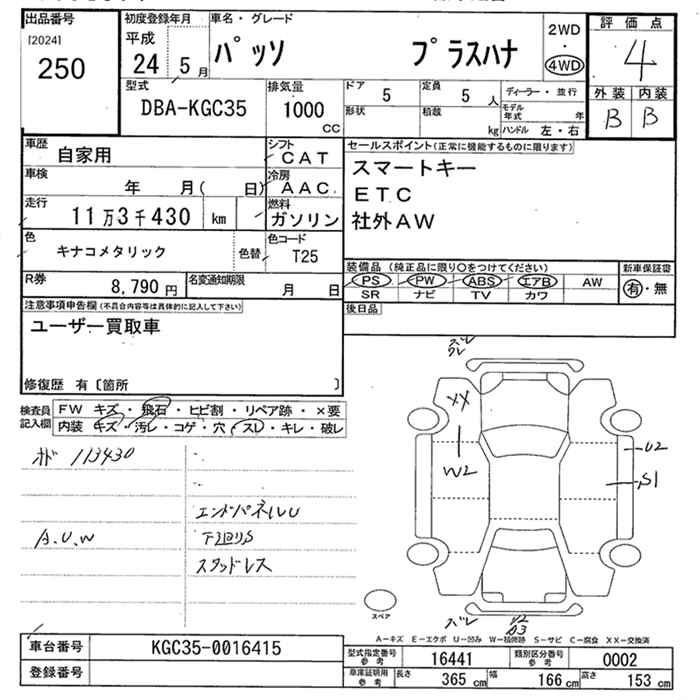 出品番号
[2024]
250
初度登録年月
平成
24 5 月
車名・グレード
パッソ プラスハナ
2WD
・
4WD
評価点
4
外装 内装
B B
型式
DBA-KGC35
排気量
1000
CC
ドア
5
定員
5 人
形状
積載
kg
ディーラー・並行
モデル
年式 年
ハンドル 左・右
車歴
自家用
シフト
CAT
車検
年 月( 日)
冷房
AAC
走行
11万3千430 km
燃料
ガソリン
色
キナコメタリック
色替
色コード
T25
R券
8,790 円
名変通知期限
月 日
セールスポイント(正常に機能するものに限ります)
スマートキー
ETC
社外AW
装備品 (純正品に限り○をつけてください)
PS PW ABS エアB AW
SR ナビ TV カワ
新車保証書
有・無
後日品
注意事項申告欄(不具合内容等は具体的に記入して下さい)
ユーザー買取車
修復歴 有〔箇所 〕
検査員
記入欄
FW キズ・飛石・ヒビ割・リペア跡・×要
内装 キズ・汚レ・コゲ・穴・スレ・キレ・破レ
113430
エンドパネルU
A.U.W
下廻りS
スタッドレス
XX
W2
U2
S1
U2
スペア
A-キズ E-エクボ U-凹み W-補修跡 S-サビ C-腐食 XX-交換済
車台番号
KGC35-0016415
登録番号
型式指定番号
参考
16441
類別区分番号
参考
0002
車庫証明用
参考
長さ 365 cm 幅 166 cm 高さ 153 cm